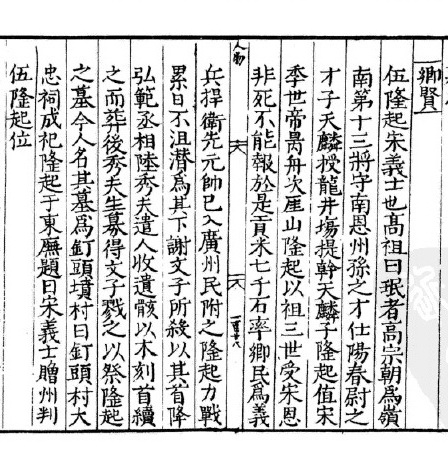 鄉賢
伍隆起宋義士也高祖曰珉者高宗朝為嶺
南第十三將守南恩州孫之才仕陽春尉之
才子天麟授龍井場提幹天麟子隆起值宋
季世帝昺舟次厓山隆起以祖三世受宋恩
非死不能報於是貢米七千石率鄉民為義
人物
兵捍衛先元帥已入廣州民附之隆起力戰
累日不沮潛為其下謝文子所殺以其首降
弘範丞相陸秀夫遣人收遺骸以木刻首續
之而葬後秀夫生募得文子戮之以祭隆起
之墓今人名其墓為釘頭墳村曰釘頭村大
忠祠成祀隆起于東廡題曰宋義士贈州判
伍隆起位